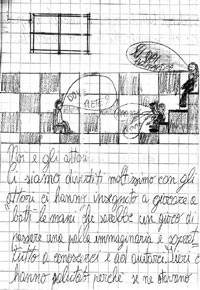 Noi e gli attori
Ci siamo divertiti moltissimo con gli
attori ci hanno insegnato a giocare a
batti le mani che sarebbe un gioco di
passare una palla immaginaria e soprat
tutto a conoscerci e ad aiutarci. Ieri ci
hanno salutati perchè se ne stavano